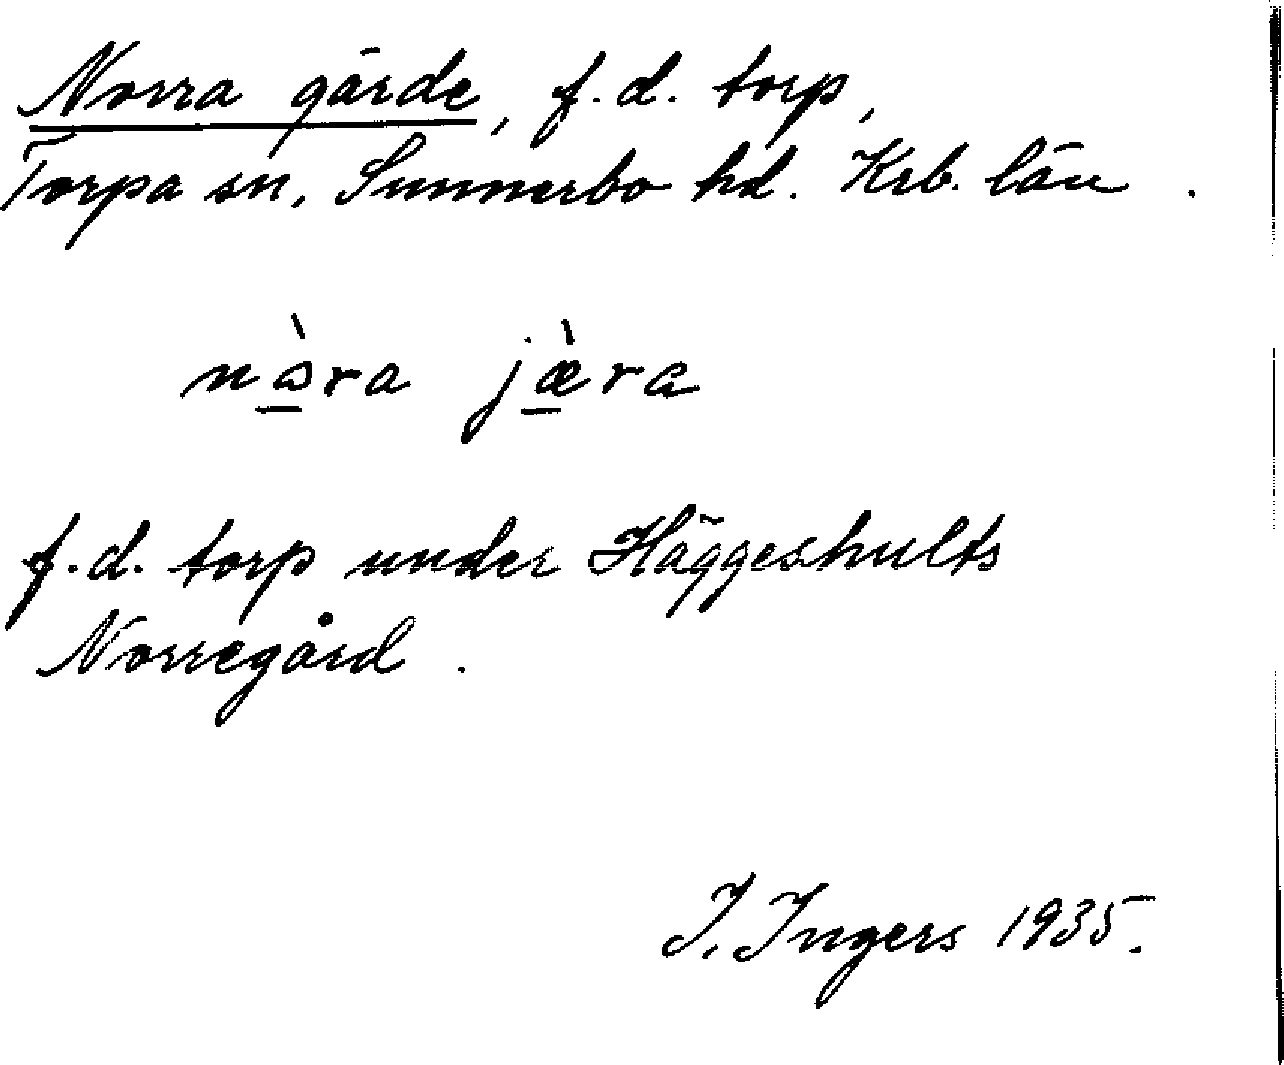 Norra gärde, f.d. torp,
Torpa sn, Sunnerbo hd. Krb. län.
nàra jæ̀ra
f.d. torp under Häggeshults
Norregård.
I. Ingers 1935.